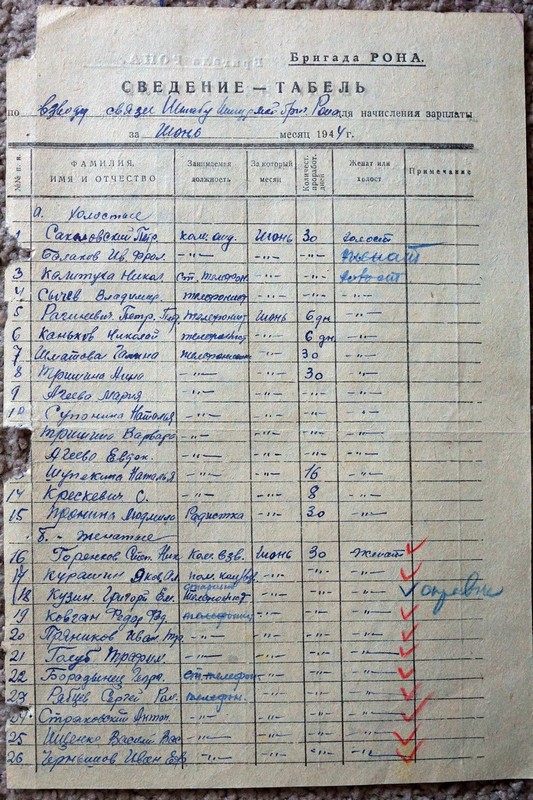 Бригада РОНА.
СВЕДЕНИЕ — ТАБЕЛЬ
по взводу связи Штабу Штурмой бриг. Рона для начисления зарплаты
за Июнь месяц 1944 г.
№№ п. п. ФАМИЛИЯ, ИМЯ И ОТЧЕСТВО Занимаемая должность За который месяц Количест. проработ. дней Женат или холост Примечание
а. Холостые
1 Саковский Петр. ком. отд. Июнь 30 холост
Балаков Ив. Фрол. —"— —"— —"— женат
3 Калитука Никол. ст. телефон. —"— —"— холост
4 Сычев Владимир. телефонист —"— —"— —"—
5 Рагилевич Петр. телефонист Июнь 6 дн —"—
6 Каньков Николай телефонист —"— 6 дн —"—
7 Шматова Галина телефонистка —"— 30 —"—
8 Тришина Анна —"— —"— 30 —"—
9 Агеева Мария —"— —"— —"— —"—
10 Супонина Наталья —"— —"— —"— —"—
Тришина Варвара —"— —"— —"— —"—
Агеева Евдок. —"— —"— —"— —"—
Шупекина Наталья —"— —"— 16 —"—
14 Крескевич С. —"— —"— 8 —"—
15 Пронина Людмила Радистка —"— 30 —"—
б. - женатые
16 Горенков Степ. Ник. Ком. взв. Июнь 30 женат
17 Курашин Яков Ал. пом. ком. взв. —"— —"— —"—
18 Кузин Григорий Ем. телефонист —"— —"—
19 Ковган Федор Фд. телефонист —"— —"— —"—
20 Пряников Иван Гр. —"— —"— —"— —"—
21 Голуб Трофим. —"— —"— —"— —"—
22 ст. телефон. —"— —"— —"—
23 Рабцев Сергей Ром. телефон. —"— —"— —"—
24 Страховский Антон. —"— —"— —"— —"—
25 Ищенко Василий Вас. —"— —"— —"— —"—
26 Чернышов Иван Евд. —"— —"— —"— —"—